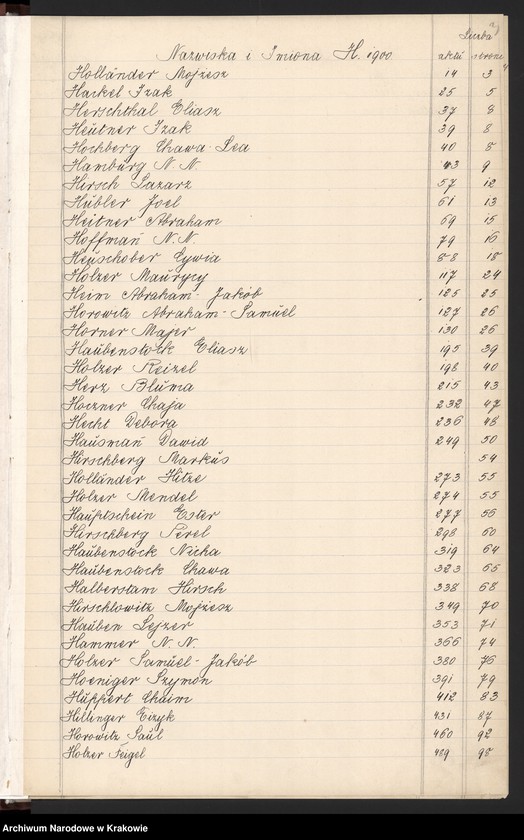 Liczba
Nazwiska i Imiona H. 1900 aktu strone
Holländer Mojżesz 14 3
Hackel Izak 25 5
Herschthal Eliasz 37 8
Heutner Izak 39 8
Hochberg Chawa-Lea 40 8
Hamburg N. N. 43 9
Hirsch Lazarz 57 12
Hübler Joel 61 13
Heitner Abraham 69 15
Hoffman N. N. 79 16
Heuschober Cywia 88 18
Holzer Maurycy 117 24
Heim Abraham-Jakób 125 25
Horowitz Abraham-Samuel 127 26
Horner Majer 130 26
Haubenstock Eliasz 195 39
Holzer Reizel 198 40
Herz Bluma 215 43
Hoczner Chaja 232 47
Hecht Debora 236 48
Hausman Dawid 249 50
Hirschberg Markus 54
Holländer Hitze 273 55
Holzer Mendel 274 55
Hauptschein Ester 277 56
Hirschberg Perel 298 60
Haubenstock Nicha 319 64
Haubenstock Chawa 323 65
Halberstam Hirsch 338 68
Hirschlowitz Mojżesz 349 70
Hauben Lejzer 353 71
Hammer N. N. 366 74
Holzer Samuel-Jakób 380 76
Hoeniger Szymon 391 79
Huppert Chaim 412 83
Hillinger Eizyk 431 87
Horowitz Saul 460 92
Holzer Feigel 489 98
Archiwum Narodowe w Krakowie